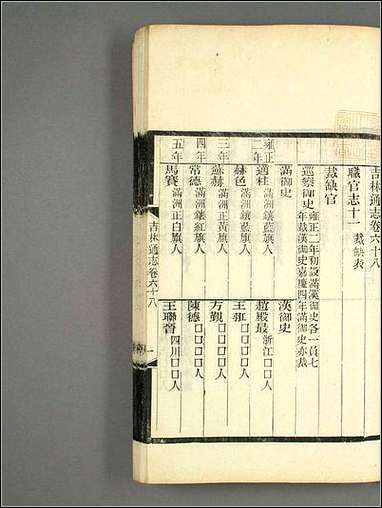 吉林通志卷六十八
職官志十一 裁缺表
裁缺官
巡察御史 雍正二年初設滿漢御史各一員七
年裁漢御史嘉慶四年滿御史亦裁
滿御史 漢御史
雍正二年 適柱 滿洲鑲藍旗人 趙殿最 浙江囗囗人
赫色 滿洲鑲藍旗人 王 囗囗囗囗人
三年 蘇赫 滿洲正黃旗人 方覲 囗囗囗囗人
四年 常德 滿洲鑲紅旗人 陳德 囗囗囗囗人
五年 馬賽 滿洲正白旗人 王聯晉 四川囗囗人
吉林通志卷六十八 一